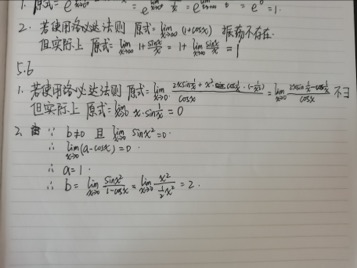 1. 原式= e = e = e = e⁰ =1.
2. 若使用洛必达法则 原式=lim x→∞ (1+cosx) 振荡不存在.
但实际上 原式= lim x→∞ 1+sinx/x = 1+ lim x→∞ sinx/x = 1
5.6
1. 若使用洛必达法则 原式=lim x→0 cosx = lim x→0 cosx 不∃
但实际上 原式= lim x→0 x·sin 1/x = 0
2. ∵ b≠0 且 lim x→0 sinx²=0.
∴ lim x→0 (a-cosx)=0.
∴ a=1.
∴ b= lim x→0 sinx²/1-cosx = lim x→0 x²/½x² = 2.